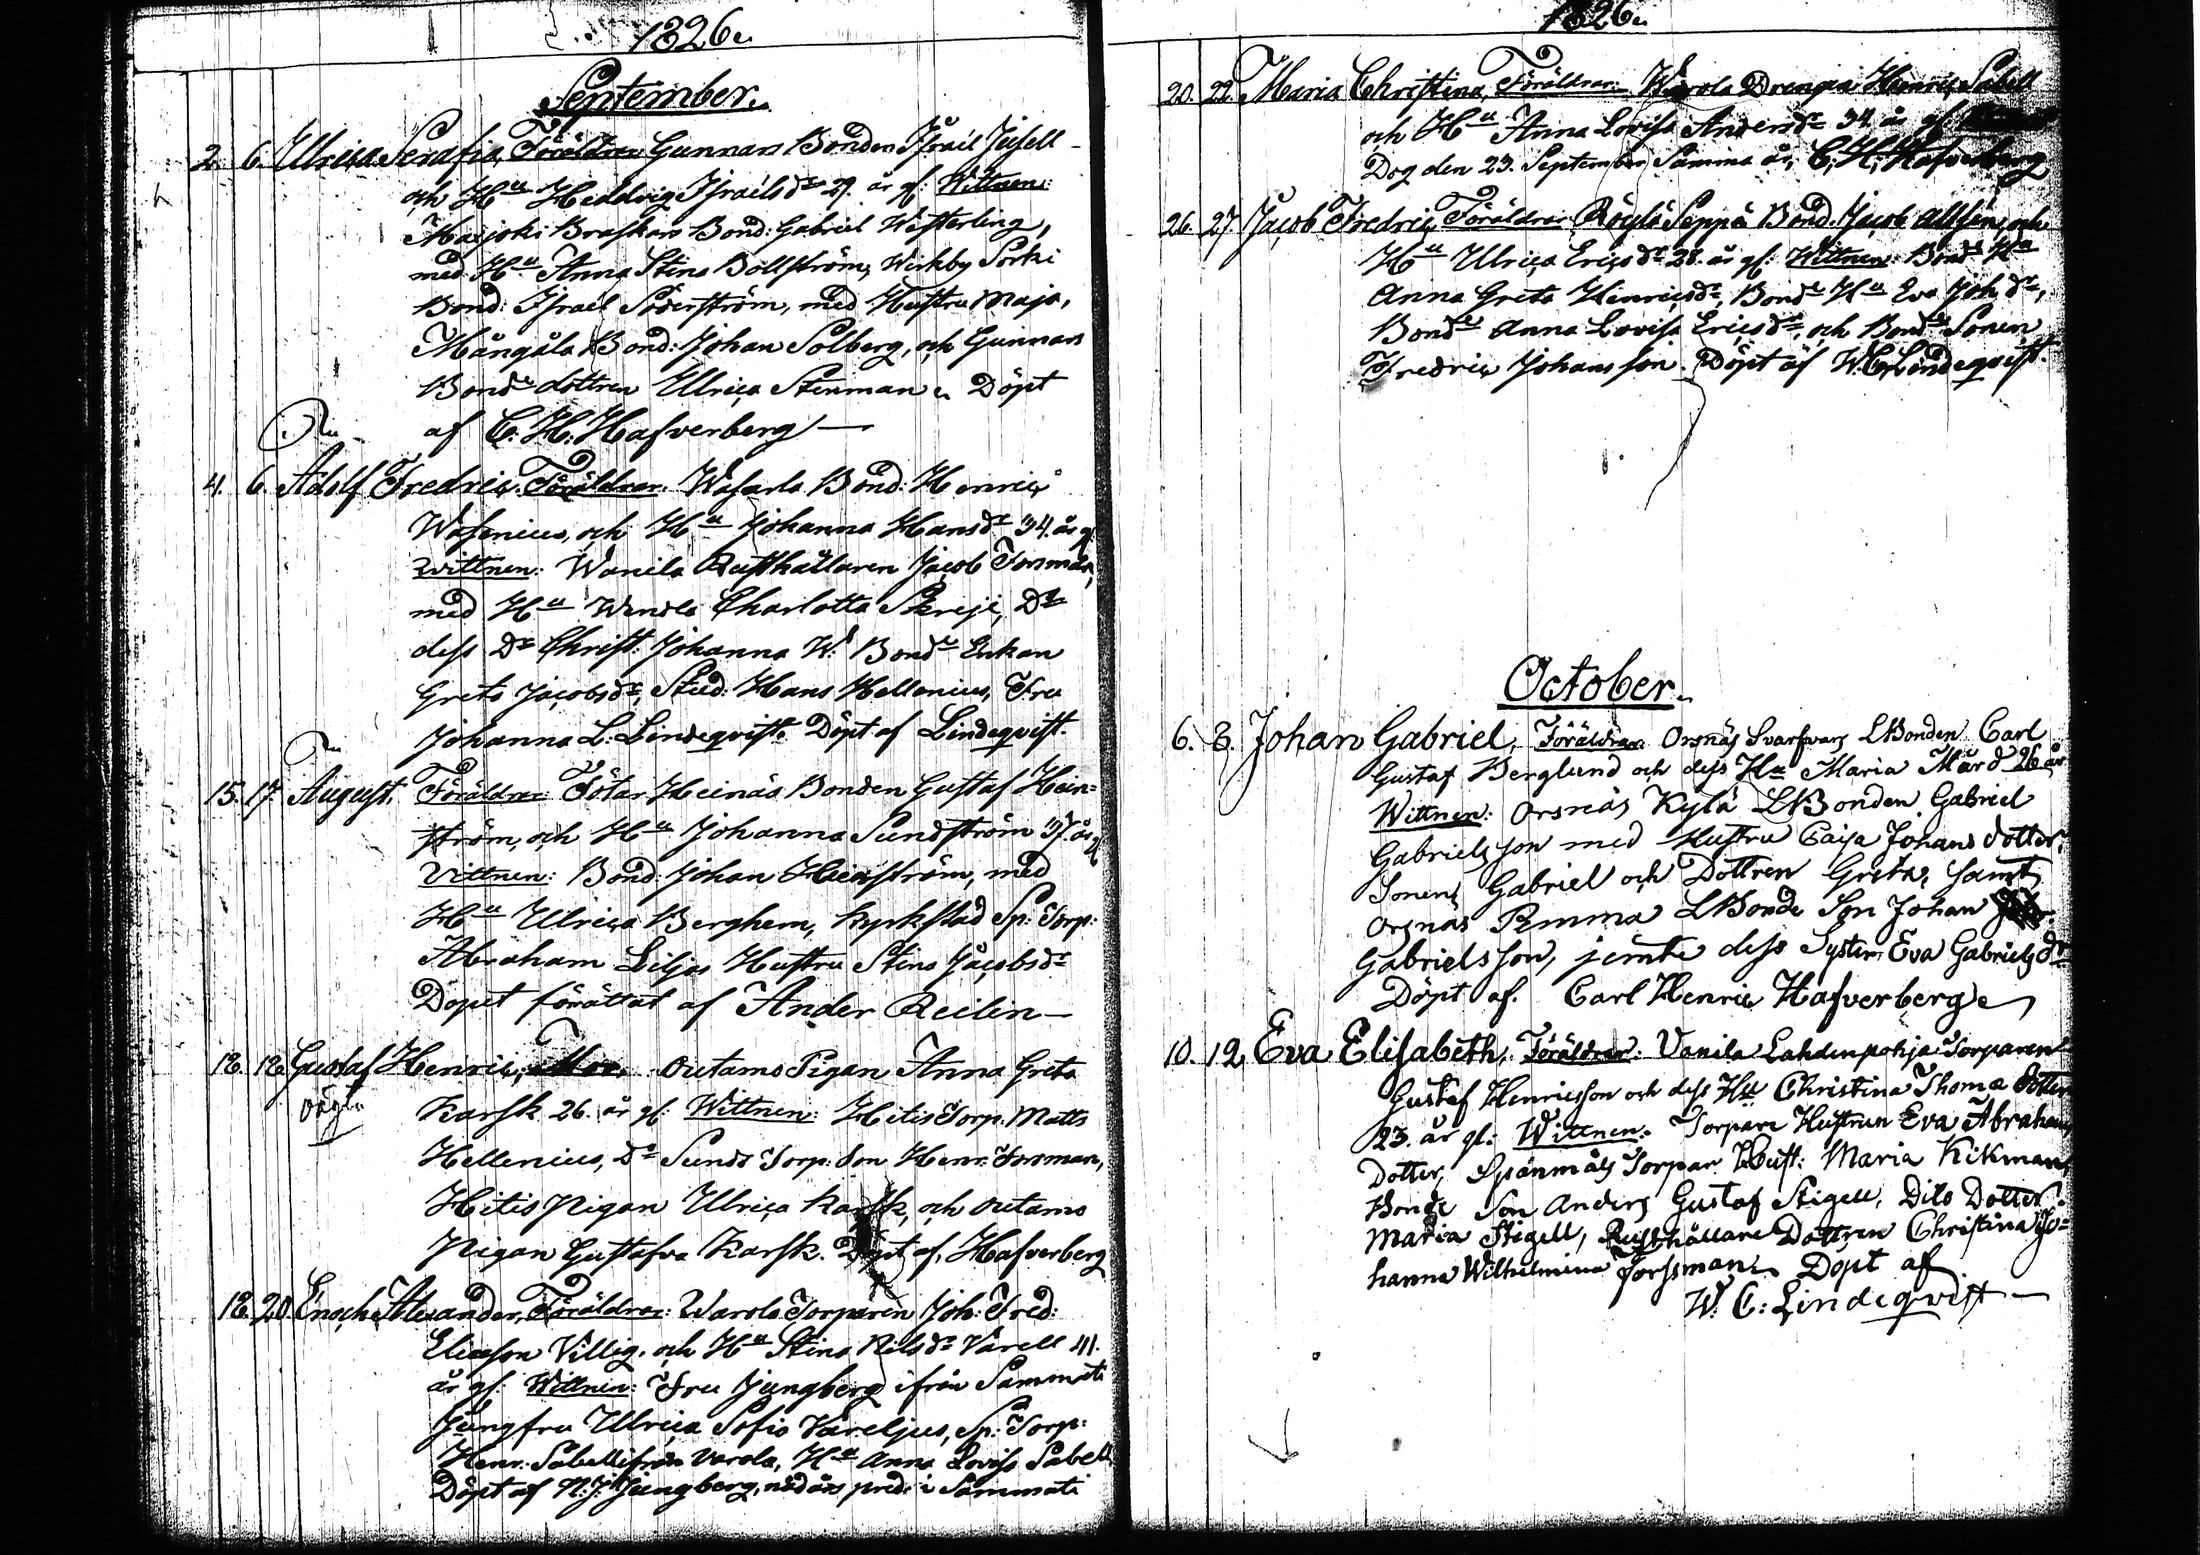 1826.
September.
2. 6. Ulrica Serafia, Föräldrar Gunnars Bonden Israel Jusell
och Hu Heddvig Israelsdr 27. år gl: Wittnen:
Maijoki Braskars Bond: Gabriel Westerling,
med Hu Anna Stina Bollström, Wirkby Sorki
Bond: Israel Söderström, med Hustru Maja,
Mångåla Bond: Johan Solberg, och Gunnars
Bonde dottren Ulrica Stenman. Döpt
af C. H. Hafverberg
4. 6. Adolf Fredric. Föräldrar. Wasarla Bond: Henric
Wasenius, och Hu Johanna Hansdr 34. år gl.
Wittnen: Wanila Rusthållaren Jacob Forsman,
med Hu Wendla Charlotta Skreji, Dr
dess Dr Christ: Johanna W. Bonde Enkan
Greta Jacobsdr, Stud: Hans Hellenius, Fru
Johanna L. Lindeqvist. Döpt af Lindeqvist.
15. 17. August. Föräldrar: Tötar Heinäs Bonden Gustaf Hein=
ström, och Hu Johanna Sundström 37. år gl
Vittnen: Bond. Johan Heinström, med
Hu Ulrica Berghem, Kyrkstad Sp: Torp:
Abraham Liljas Hustru Stina Jacobsdr
Dopet förättat af Ander Reilin
12. 12. Gustaf Henric, Mor. Outamo Pigan Anna Greta
oägta Karsk 26. år gl: Wittnen: Hitis Torp. Matts
Hellenius, Do Sunds Torp: Son Henr. Forsman,
Hitis Pigan Ulrica Karsk, och Outamo
Pigan Gustafva Karsk. Döpt af Hafverberg
18. 20. Enoch Alexander, Föräldrar: Varola Torparen Joh: Fred:
Eliasson Villig. och Hu Stina Nilsdr Varell 41.
år gl: Wittnen: Fru Jungberg ifrån Sammati
Jungfru Ulrica Sofia Vareljus, Sp: Torp:
Henr. Sabell ifrån Varola, Hu Anna Lovisa Sabell
Döpt af N. J. Jungberg, nödårs pred: i Sammati
1826.
20. 22. Maria Christina, Föräldrar: Warola Drengen Henric Sabell
och Hu Anna Lovisa Andersdr 34. år gl.
Dog den 23. September Samma år, C. H. Hafverberg
26. 27. Jacob Fredric, Föräldrar Röylä Seppä Bond: Jacob Allsén, och
Hu Ulrica Ericsdr 28. år gl: Wittnen: Bonde Hu
Anna Greta Henricsdr, Bonde Hu Eva Joh.dr,
Bonde Anna Lovisa Ericsdr, och Bonde Sonen
Fredric Johansson. Döpt af W. C. Lindeqvist.
October.
6. 8. Johan Gabriel, Föräldrar Orsnäs Svarfvars LBonden Carl
Gustaf Berglund och dess Hu Maria Mård 26 år
Wittnen: Orsnäs Kylä LBonden Gabriel
Gabrielsson med Hustru Caisa Johans dotter.
Sonen Gabriel och Dottren Greta, samt
Orsnäs Pemma LBonde Son Johan
Gabrielsson, jemte dess Syster Eva Gabrielsdr
Döpt af. Carl Henric Hafverberg
10. 12. Eva Elisabeth, Föräldrar: Vanila Lahdenpohja Torparen
Gustaf Henricsson och dess Hu Christina Thomæ dotter
23. år gl: Wittnen. Torpare Hustrun Eva Abrahams
Dotter, Spånmäls Torpar Hust: Maria Kikman,
Bonde Son Anders Gustaf Stigell, Dito Dotter
Maria Stigell, Rusthållare Dottren Christina Jo=
hanna Wilhelmina Forssman. Döpt af
W. C: Lindeqvist